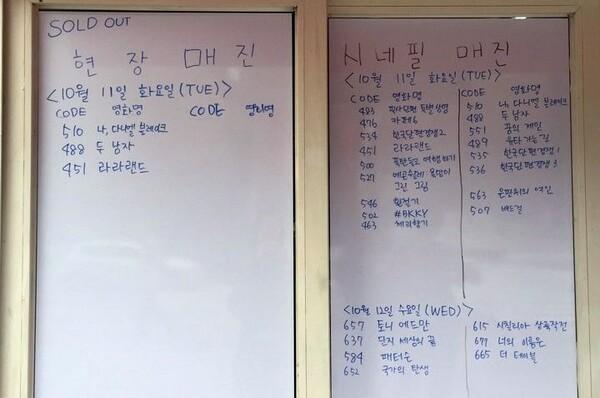 SOLD OUT
현 장 매 진
<10월 11일 화요일(TUE)>
CODE 영화명 CODE 영화명
510 나, 다니엘 블레이크
488 두 남자
451 라라랜드
시네필 매진
<10월 11일 화요일(TUE)>
CODE 영화명
483 특별상영
476 카페6
534 한국단편경쟁2
451 라라랜드
500 폭탄들고 여행하기
527
그린 그림
546 환절기
502 #BKKY
463
CODE 영화명
510 나, 다니엘 블레이크
488 두 남자
551 꿈의 제인
489
535 한국단편경쟁 1
536 한국단편경쟁 3
563 은판위의 여인
507 배드걸
<10월 12일 수요일(WED)>
657 토니 에드만
637 단지 세상의 끝
584 패터슨
652 국가의 탄생
615 시칠리아 상륙작전
677 너의 이름은
665 더 테이블